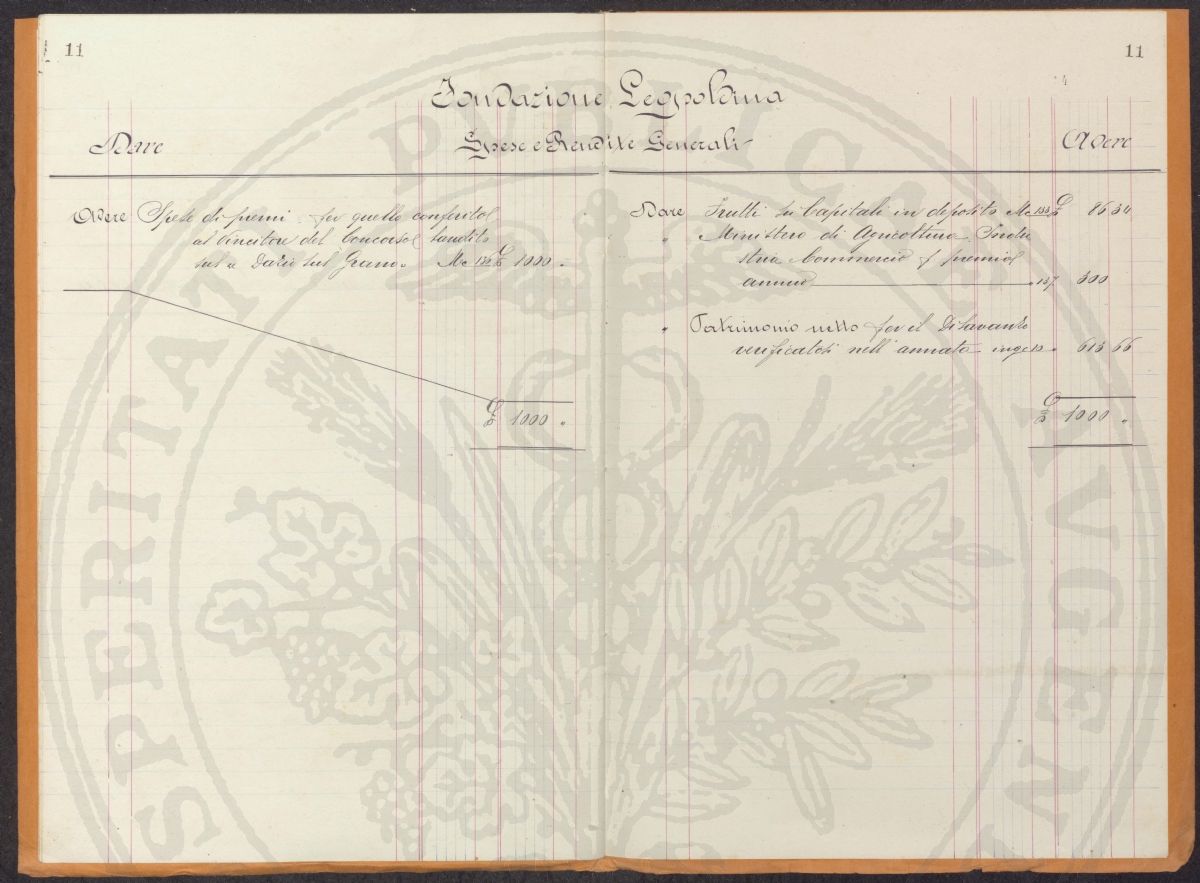 11
11
Fondazione Leopoldina
Dare
Spese e Rendite Generali
Avere
Avere Spese di premi per quello conferito
al Vincitore del Concorso bandito
sul Dazio sul Grano Me 136 £ 1000 "
£ 1000 "
Dare Frutti su Capitali in deposito Me 133 £ 86 34
" Ministero di Agricoltura Indu
stria Commercio premio
annuo " 137 300
" Patrimonio netto per el Disavanzo
verificatosi nell' annata " 613 66
£ 1000 "
SPERITAT PUBLIC AVGEN